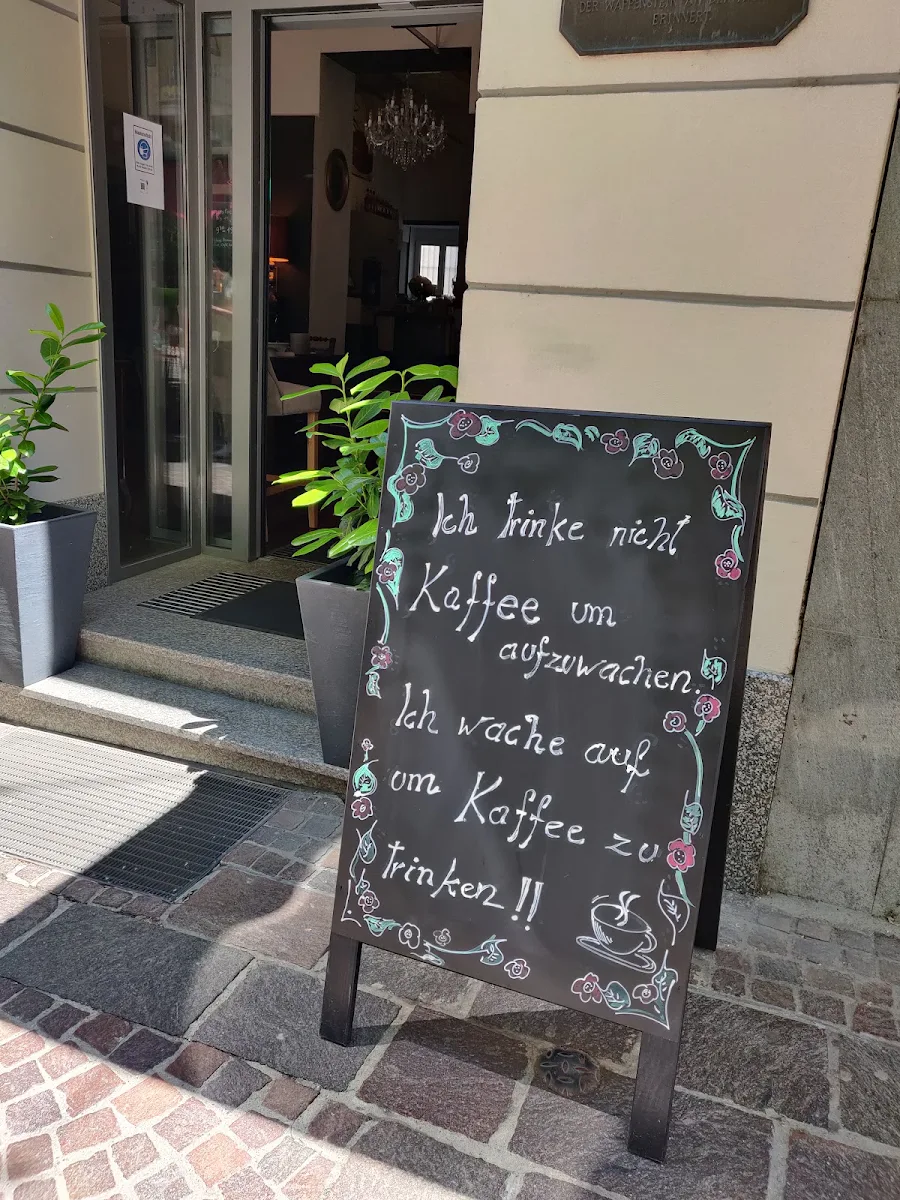 ERINNERT
Ich trinke nicht
Kaffee um
aufzuwachen.
Ich wache auf
um Kaffee zu
trinken!!